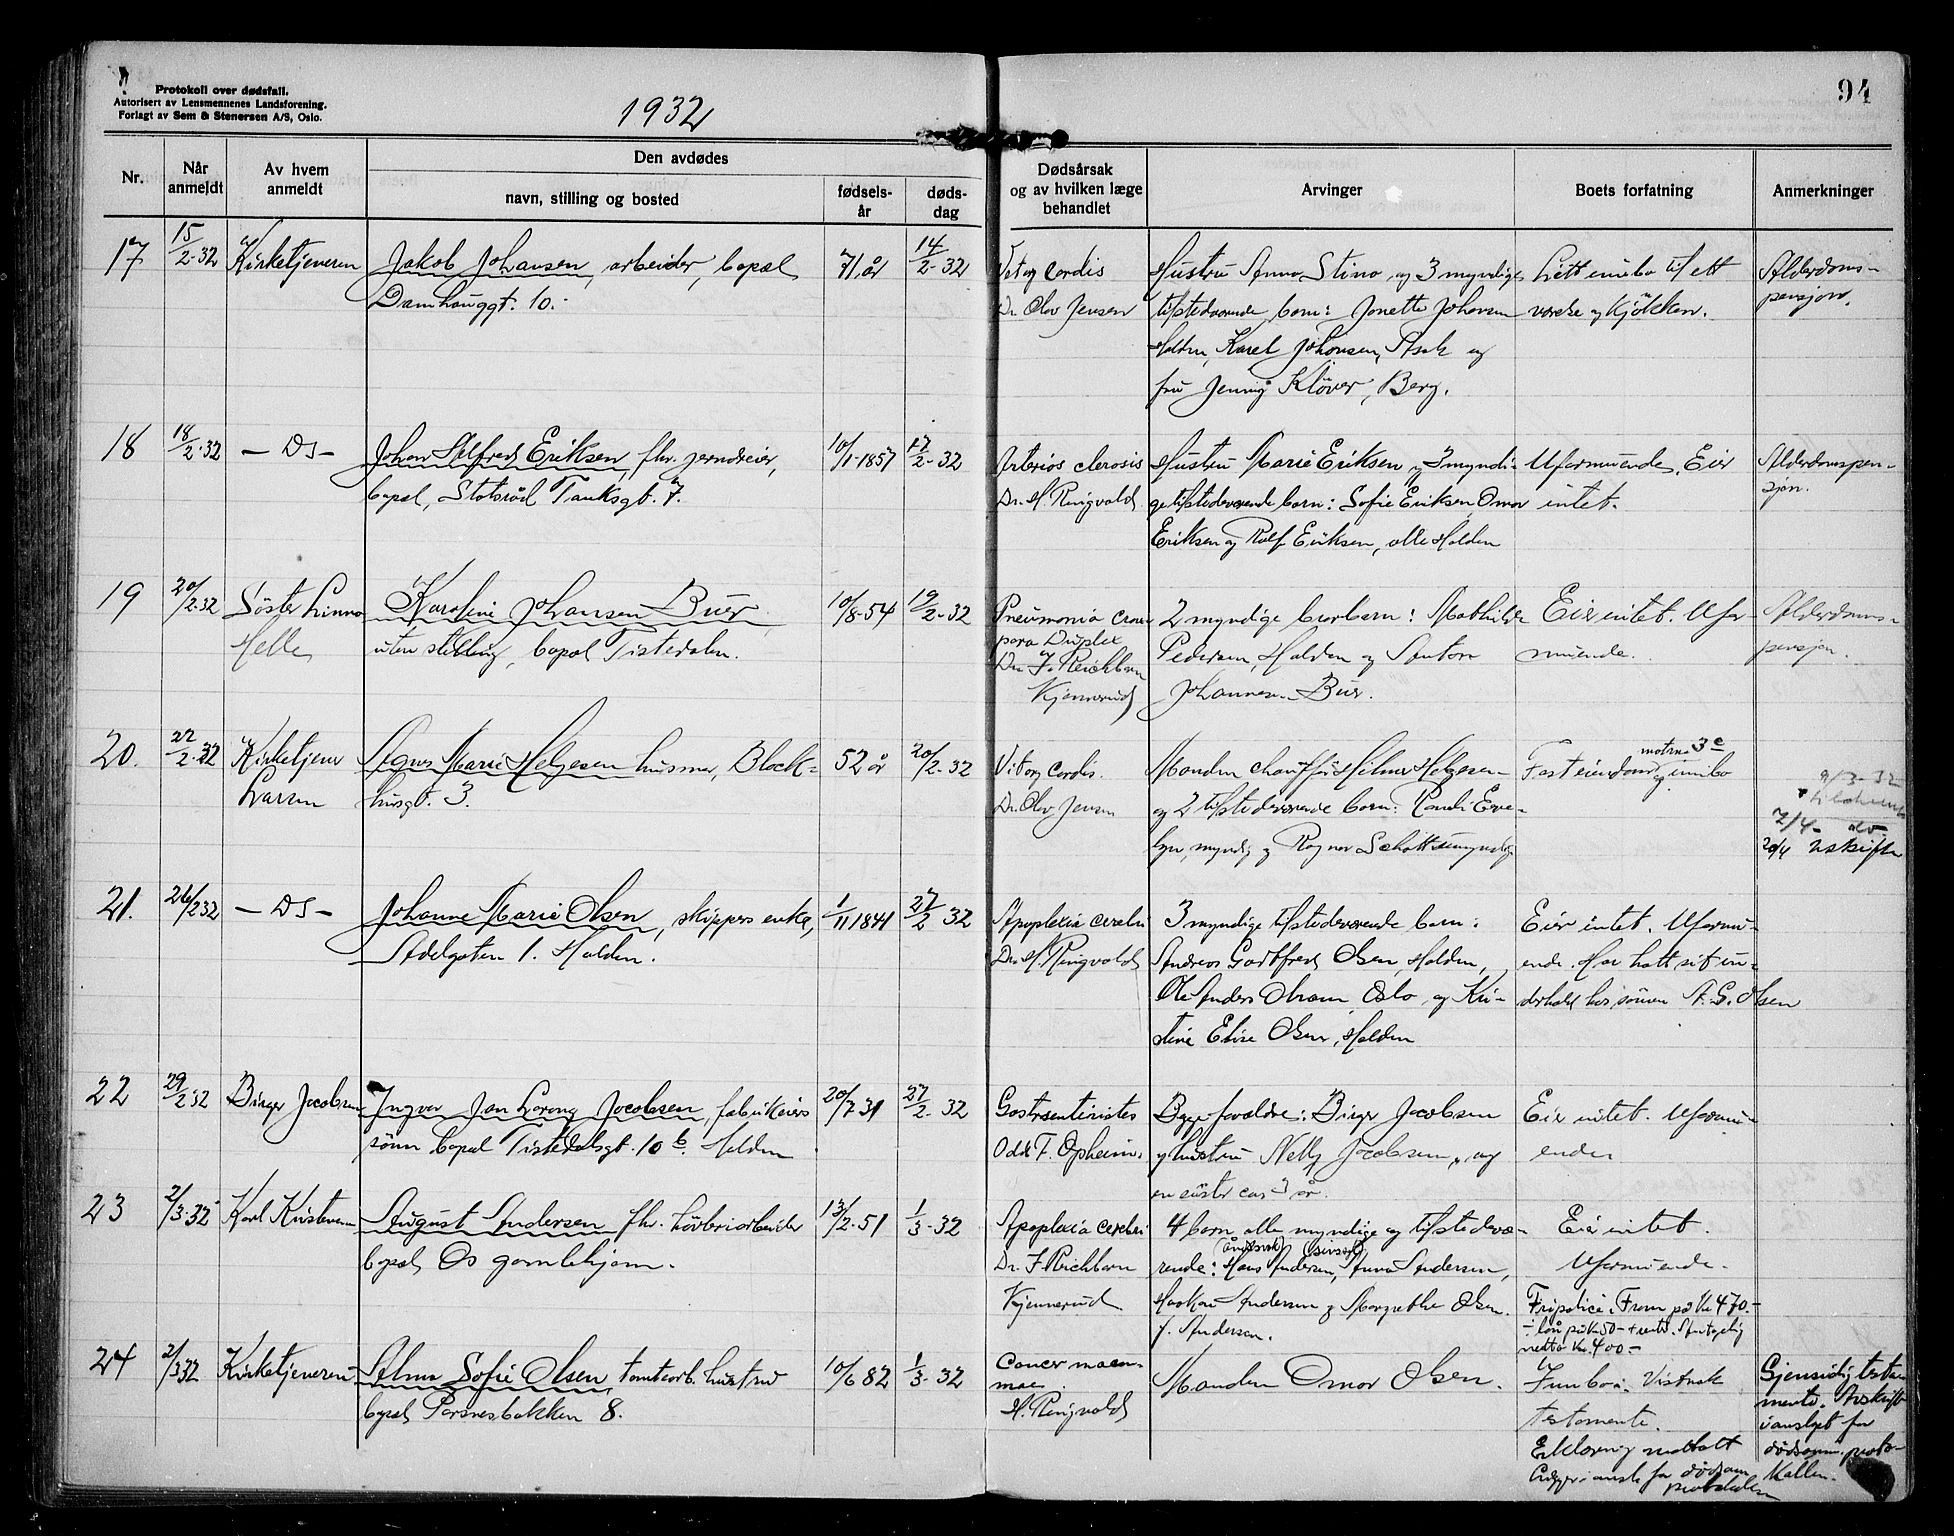 Protokoll over dødsfall.
Autorisert av Lensmennenes Landsforening.
Forlagt av Sem & Stenersen A/S, Oslo.
1932
94
Nr.
Når anmeldt
Av hvem anmeldt
Den avdødes
navn, stilling og bosted
fødsels-år
døds-dag
Dødsårsak og av hvilken læge behandlet
Arvinger
Boets forfatning
Anmerkninger
17
15/2-32
Kirketjeneren
Jakob Johansen, arbeider, bopæl
Damhauggt. 10.
71 år
14/2-32
Vit og Cordis
Dr. Olav Jensen
Hustru Anna Stina og 3 myndige
tilstedværende barn: Jonette Johansen
Halden, Karel Johansen, Asak og
fru Jenny Kløver, Berg.
Lett innbo til ett
værelse og kjøkken.
Alderdoms-
pensjon.
18
18/2-32
— DS —
Johan Alfred Eriksen, fhv. jerndreier,
bopæl, Stolsrød Tanksgt. 7.
10/1-1857
17/2-32
Arterios clerosis
Dr. H. Ringvold
Hustru Marie Eriksen og 3 myndi-
ge tilstedeværende barn: Sofie Eriksen, Omar
Eriksen og Rolf Eriksen, alle Halden
Uformuende. Eier
intet.
Alderdomspen-
sjon.
19
20/2-32
Søster Linna
Helle
Karoline Johansen Buer
uten stilling, bopæl Tistedalen.
10/8-54
19/2-32
Pneumonia crou
posa Duplex
Dr. F. Reichborn
Kjennerud
2 myndige brorbarn: Mathilde
Pedersen, Halden og Anton
Johannesen Buer.
Eier intet. Ufor-
muende.
Alderdoms-
pensjon.
20.
22/2-32
Kirketjener
Larsen
Agnes Marie Helgesen husmor, Block-
husgt. 3.
52 år
20/2-32
Vit og Cordis.
Dr. Olav Jensen
Manden chauffør Hilmar Helgesen
og 2 tilstedeværende barn: Randi Eve-
lyn, myndig og Ragnar Schøtt umyndig
Fast eiendom og innbo
matr. 3c
9/3-32
7/4-
20/4 uskifte
21.
26/2 32
— DS —
Johanne Marie Olsen, skippers enke,
Adelgaten 1. Halden.
1/11 1841
27/2 32
Apoplexia cerebri
Dr. H. Ringvold
3 myndige tilstedeværende barn:
Andreas Gottfred Olsen, Halden,
Ole Anders Oram, Oslo, og Kri-
stine Elise Olsen, Halden
Eier intet. Uformu-
ende. Har hatt sit un-
derhold hos sønnen A. G. Olsen
22
29/2 32
Birger Jacobsen
Ingvar Jan Lorang Jacobsen, fabrikeiers
sønn bopæl Tistedalsgt. 10 b. Halden
20/7 31
27/2-32
Gastroenterites
Odd F. Opheim.
Begge forældre: Birger Jacobsen
og hustru Nelly Jacobsen, og
en søster ca. 3 år.
Eier intet. Uformu-
ende
23
2/3-32
Karl Kristensen
August Andersen fhv. høvleriarbeider
bopæl Os gamlehjem.
13/2-51
1/3-32
Apoplexia cerebri
Dr. F. Reichborn
Kjennerud
4 barn alle myndige og tilstedevæ-
rende: Hans Andersen, (åndssvak) Anna Andersen, (sinssyk)
Haakon Andersen og Margrethe Olsen
f. Andersen.
Eier intet.
Uformuende.
Fripolice. Fram på Kr 470.-
÷ lån på Kr 50- + rente. Antagelig
netto Kr. 400-
24
2/3 32
Kirketjeneren
Alma Sofie Olsen, tomtearb. hustru
bopæl Porsnesbakken 8.
10/6 82
1/3-32
Cancer mam-
mae.
H. Ringvold
Manden Omar Olsen.
Innbo. Vistnok
testamente.
Erklæring mottatt
Ligger i omsl. for dødsanm.
protokollen
Gjensidig testa-
mente. Avskrift
i omslaget for
dødsanm. proto-
kollen.